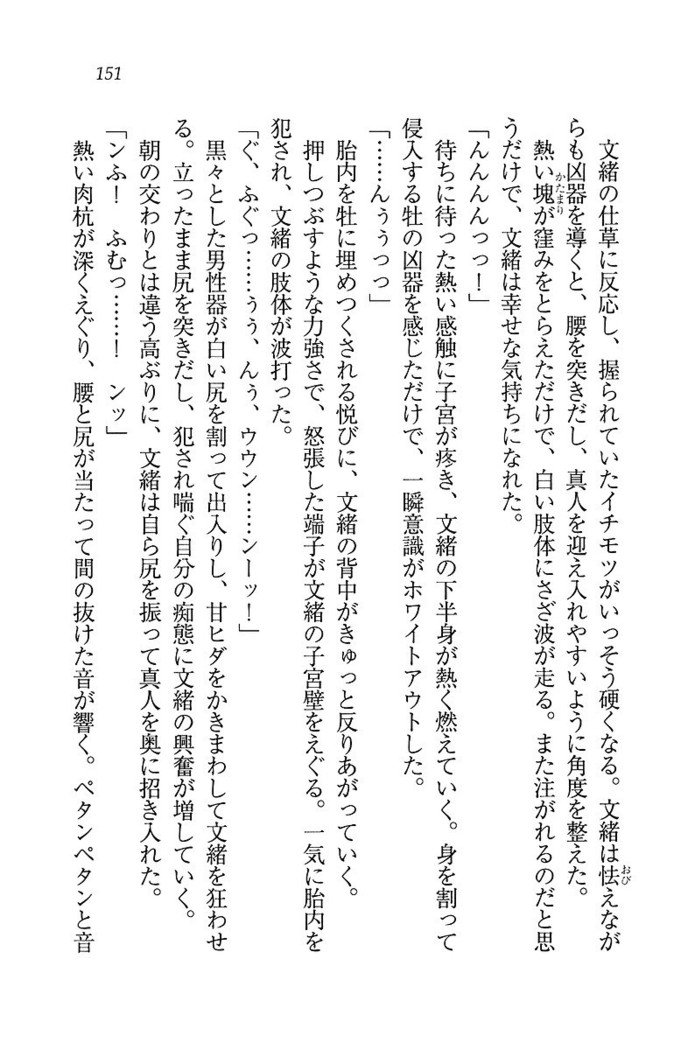 151
文緒の仕草に反応し、握られていたイチモツがいっそう硬くなる。文緒は怯えなが
おび
らも凶器を導くと、腰を突きだし、真人を迎え入れやすいように角度を整えた。
熱い塊が窪みをとらえただけで、白い肢体にさざ波が走る。また注がれるのだと思
かたまり
うだけで、文緒は幸せな気持ちになれた。
「んんんんっっ！」
待ちに待った熱い感触に子宮が疼き、文緒の下半身が熱く燃えていく。身を割って
侵入する牡の凶器を感じただけで、一瞬意識がホワイトアウトした。
「……んぅぅっっ」
胎内を牡に埋めつくされる悦びに、文緒の背中がきゅっと反りあがっていく。
押しつぶすような力強さで、怒張した端子が文緒の子宮壁をえぐる。一気に胎内を
犯され、文緒の肢体が波打った。
「ぐ、ふぐっ……ぅぅ、んぅ、ウウン……ンーッ！」
黒々とした男性器が白い尻を割って出入りし、甘ヒダをかきまわして文緒を狂わせ
る。立ったまま尻を突きだし、犯され喘ぐ自分の痴態に文緒の興奮が増していく。
朝の交わりとは違う高ぶりに、文緒は自ら尻を振って真人を奥に招き入れた。
「ンふ！　ふむっ……！　ンッ」
熱い肉杭が深くえぐり、腰と尻が当たって間の抜けた音が響く。ペタンペタンと音